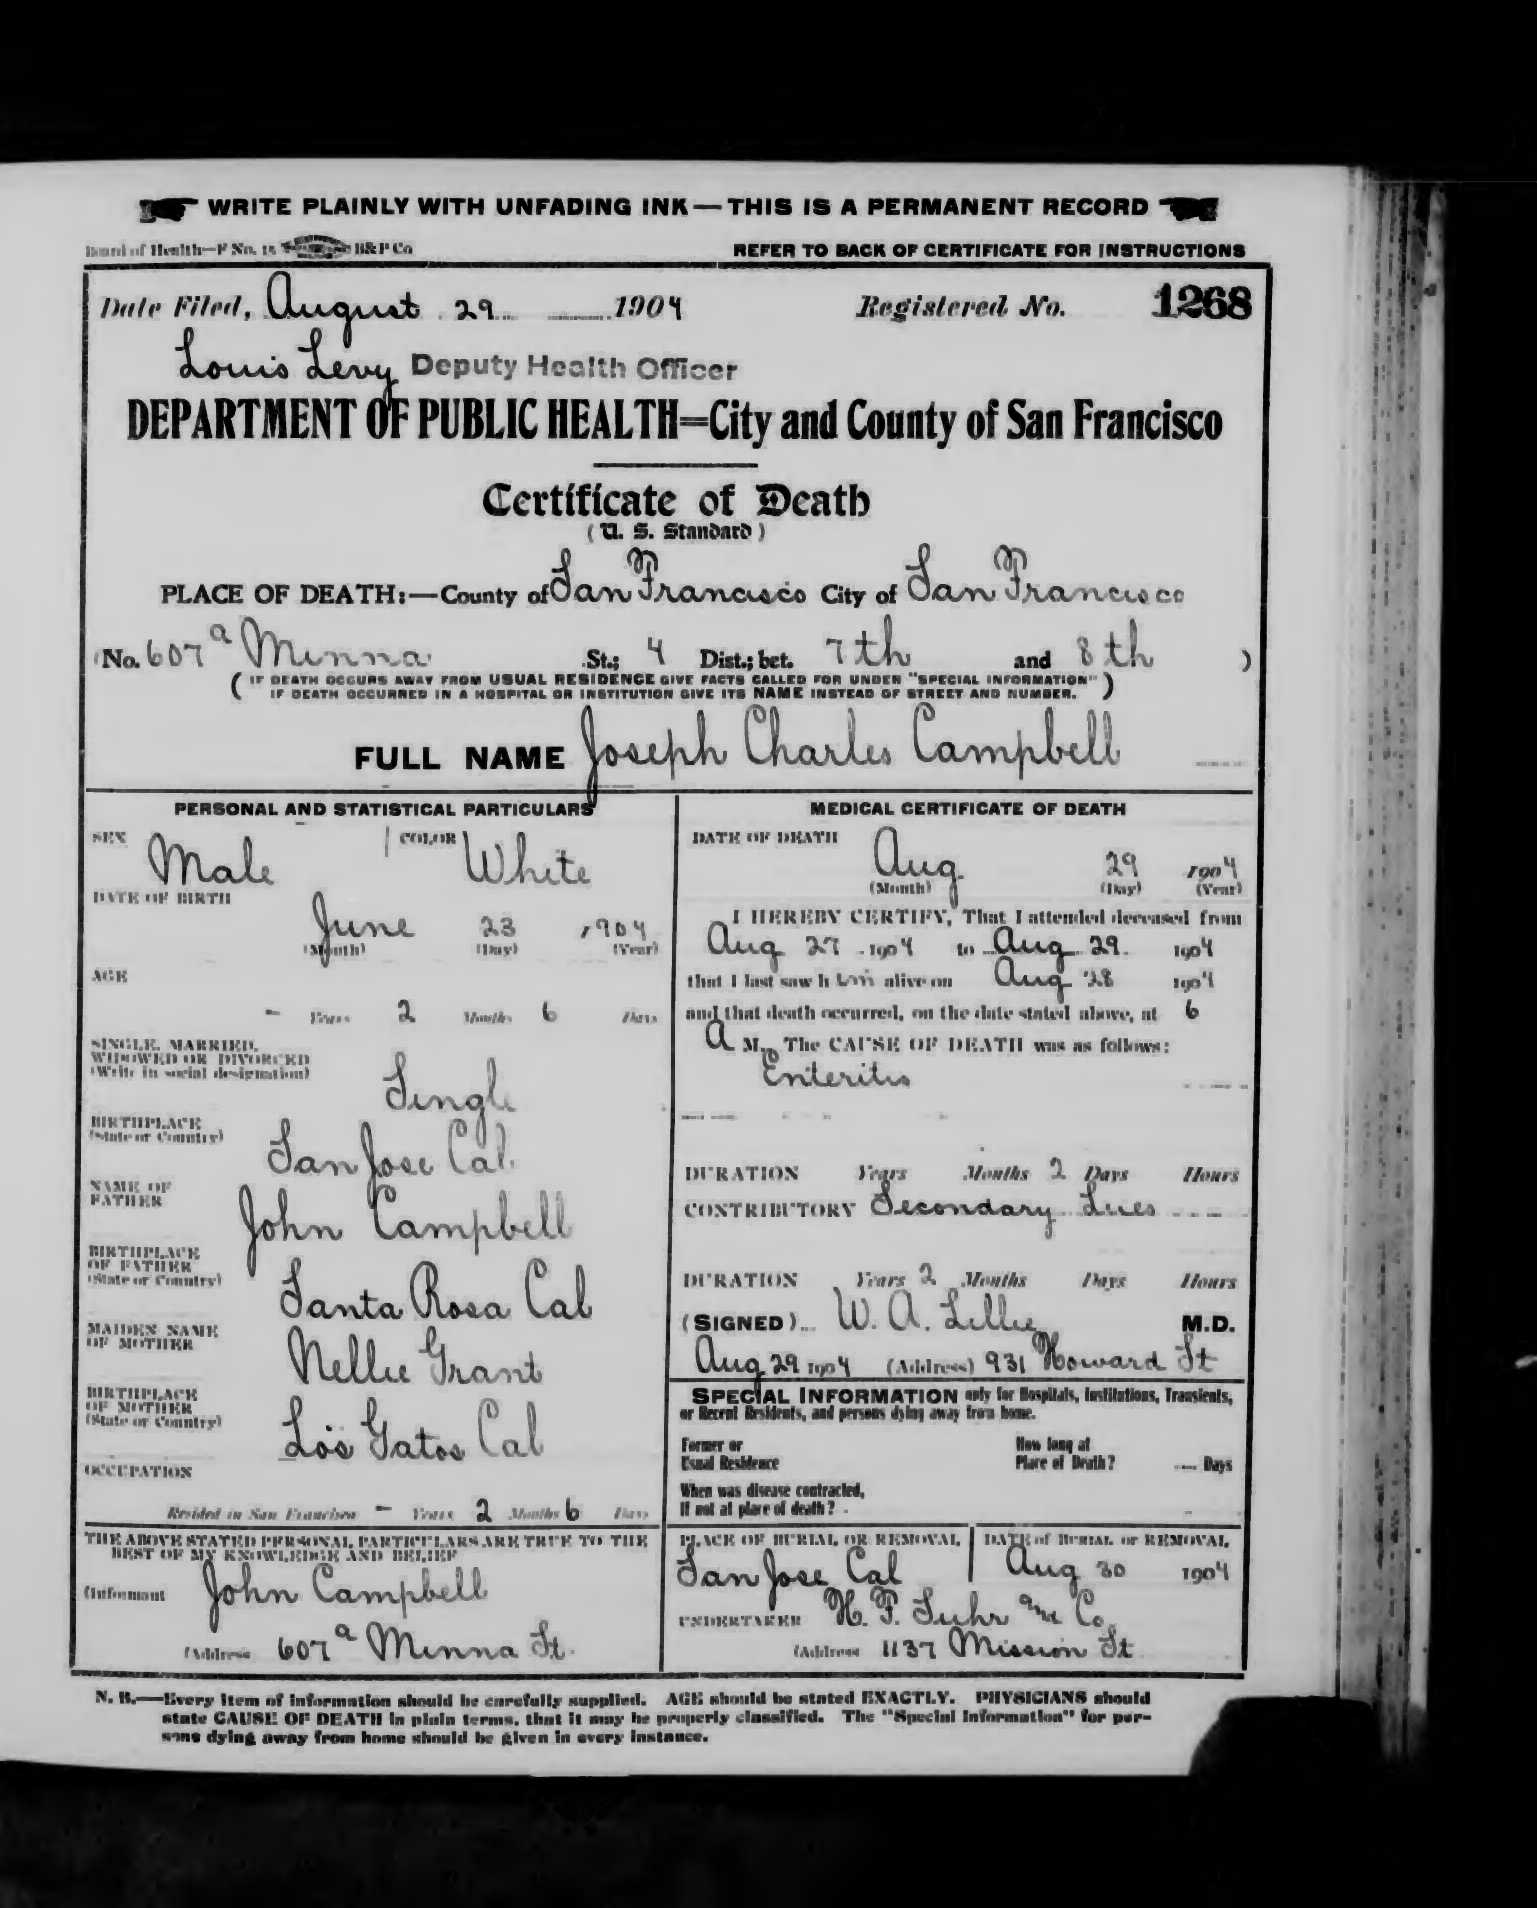 WRITE PLAINLY WITH UNFADING INK—THIS IS A PERMANENT RECORD
Board of Health—F No. 15 B&P Co REFER TO BACK OF CERTIFICATE FOR INSTRUCTIONS
Date Filed, August 29 1904 Registered No. 1268
Louis Levy Deputy Health Officer
DEPARTMENT OF PUBLIC HEALTH=City and County of San Francisco
Certificate of Death
(U. S. Standard)
PLACE OF DEATH:—County of San Francisco City of San Francisco
(No. 607a Minna St.; 4 Dist.; bet. 7th and 8th )
( IF DEATH OCCURS AWAY FROM USUAL RESIDENCE GIVE FACTS CALLED FOR UNDER "SPECIAL INFORMATION"
IF DEATH OCCURRED IN A HOSPITAL OR INSTITUTION GIVE ITS NAME INSTEAD OF STREET AND NUMBER. )
FULL NAME Joseph Charles Campbell
PERSONAL AND STATISTICAL PARTICULARS
SEX Male COLOR White
DATE OF BIRTH
June 23 1904
(Month) (Day) (Year)
AGE
- Years 2 Months 6 Days
SINGLE, MARRIED,
WIDOWED OR DIVORCED
(Write in social designation) Single
BIRTHPLACE
(State or Country) San Jose Cal
NAME OF
FATHER John Campbell
BIRTHPLACE
OF FATHER
(State or Country) Santa Rosa Cal
MAIDEN NAME
OF MOTHER Nellie Grant
BIRTHPLACE
OF MOTHER
(State or Country) Los Gatos Cal
OCCUPATION
Resided in San Francisco - Years 2 Months 6 Days
THE ABOVE STATED PERSONAL PARTICULARS ARE TRUE TO THE
BEST OF MY KNOWLEDGE AND BELIEF
(Informant John Campbell
(Address 607a Minna St.
MEDICAL CERTIFICATE OF DEATH
DATE OF DEATH
Aug. 29 1904
(Month) (Day) (Year)
I HEREBY CERTIFY, That I attended deceased from
Aug 27 1904 to Aug 29 1904
that I last saw h im alive on Aug 28 1904
and that death occurred, on the date stated above, at 6
A M. The CAUSE OF DEATH was as follows:
Enteritis
DURATION Years Months 2 Days Hours
CONTRIBUTORY Secondary Lues
DURATION Years 2 Months Days Hours
(SIGNED) W. A. Lillie M.D.
Aug 29 1904 (Address) 931 Howard St
SPECIAL INFORMATION only for Hospitals, Institutions, Transients,
or Recent Residents, and persons dying away from home.
Former or How long at
Usual Residence Place of Death? Days
When was disease contracted,
If not at place of death?
PLACE OF BURIAL OR REMOVAL DATE of BURIAL or REMOVAL
San Jose Cal Aug 30 1904
UNDERTAKER H. F. Suhr and Co.
(Address 1137 Mission St
N. B.—Every item of information should be carefully supplied. AGE should be stated EXACTLY. PHYSICIANS should
state CAUSE OF DEATH in plain terms, that it may be properly classified. The "Special Information" for per-
sons dying away from home should be given in every instance.